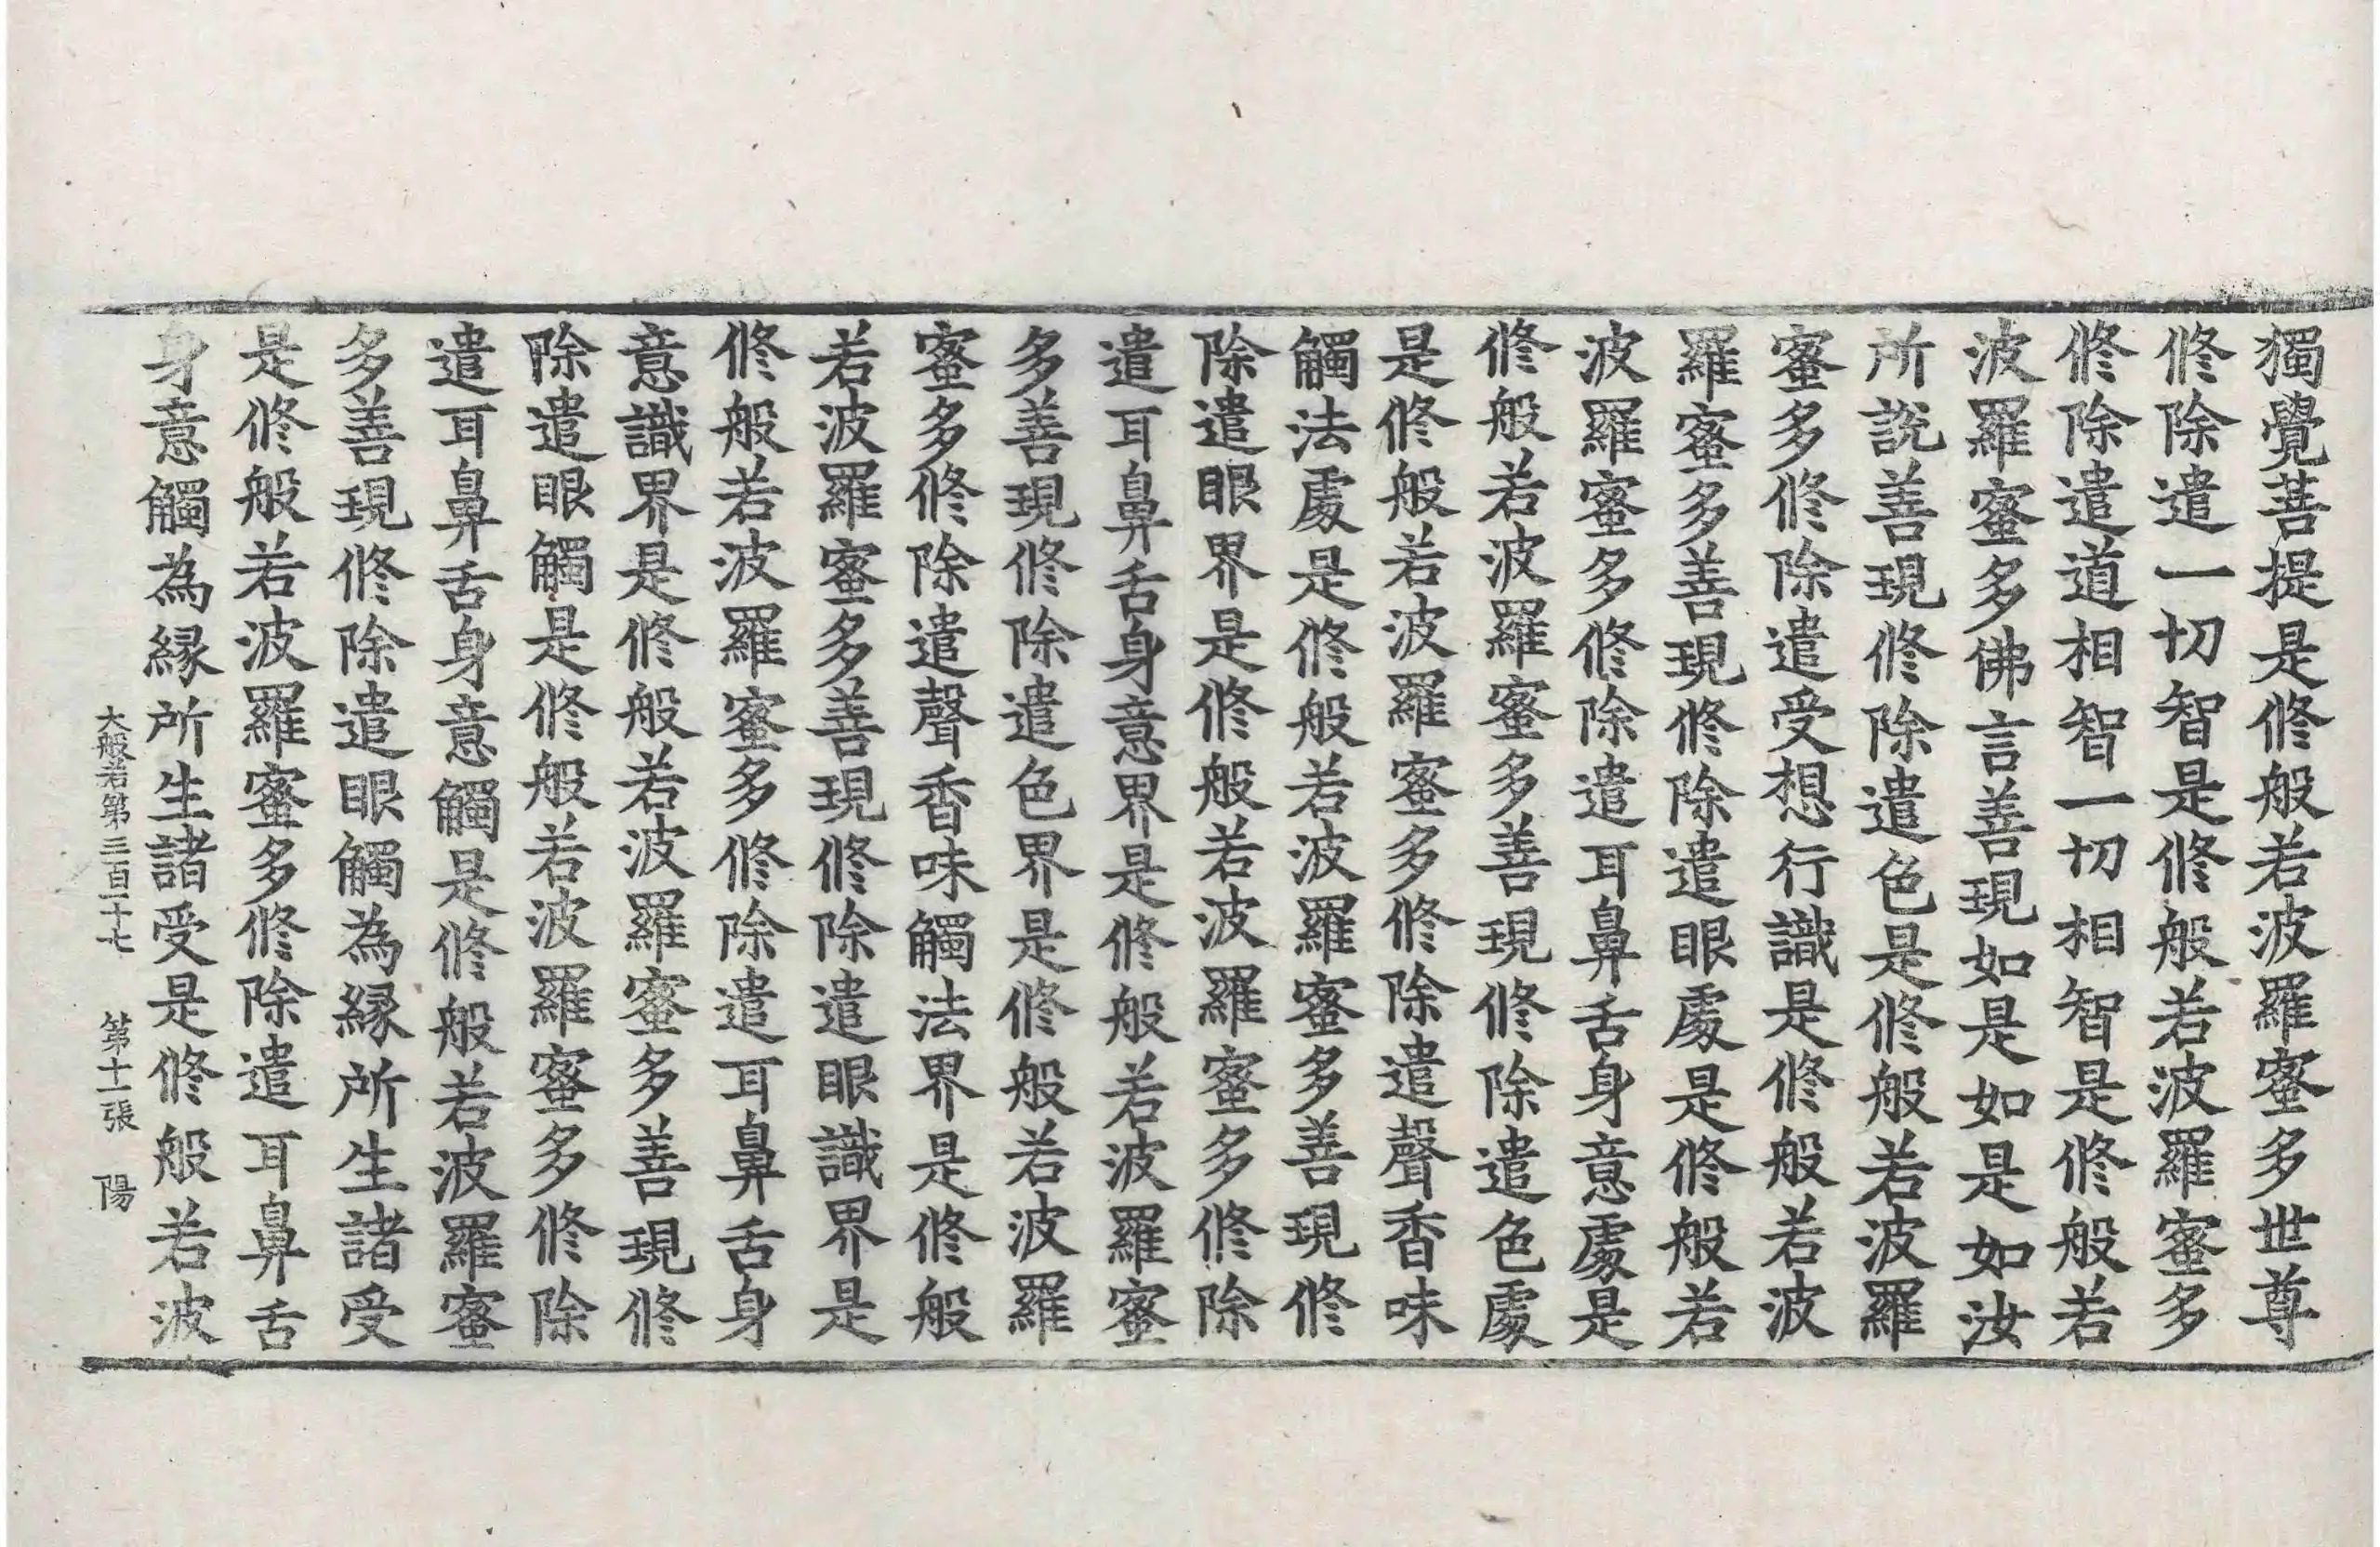 獨覺菩提是修般若波羅蜜多世尊
修除遣一切智是修般若波羅蜜多
修除遣道相智一切相智是修般若
波羅蜜多佛言善現如是如是如汝
所說善現修除遣色是修般若波羅
蜜多修除遣受想行識是修般若波
羅蜜多善現修除遣眼處是修般若
波羅蜜多修除遣耳鼻舌身意處是
修般若波羅蜜多善現修除遣色處
是修般若波羅蜜多修除遣聲香味
觸法處是修般若波羅蜜多善現修
除遣眼界是修般若波羅蜜多修除
遣耳鼻舌身意界是修般若波羅蜜
多善現修除遣色界是修般若波羅
蜜多修除遣聲香味觸法界是修般
若波羅蜜多善現修除遣眼識界是
修般若波羅蜜多修除遣耳鼻舌身
意識界是修般若波羅蜜多善現修
除遣眼觸是修般若波羅蜜多修除
遣耳鼻舌身意觸是修般若波羅蜜
多善現修除遣眼觸為緣所生諸受
是修般若波羅蜜多修除遣耳鼻舌
身意觸為緣所生諸受是修般若波
大般若第三百二十七 第十一張 陽